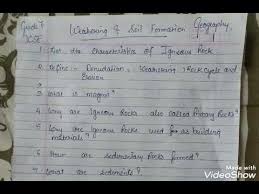 Grade 7
Weathering & Soil Formation
Geography
1. List the characteristics of Igneous Rock
2. Define:- Denudation, Weathering, Rock cycle and
Erosion
3. What is magma?
4. Why are Igneous Rocks also called Primary Rocks?
5. Why are Igneous Rocks used for as building
materials?
6. How are sedimentary Rocks formed?
7. What are sediments?
Made with
VideoShow